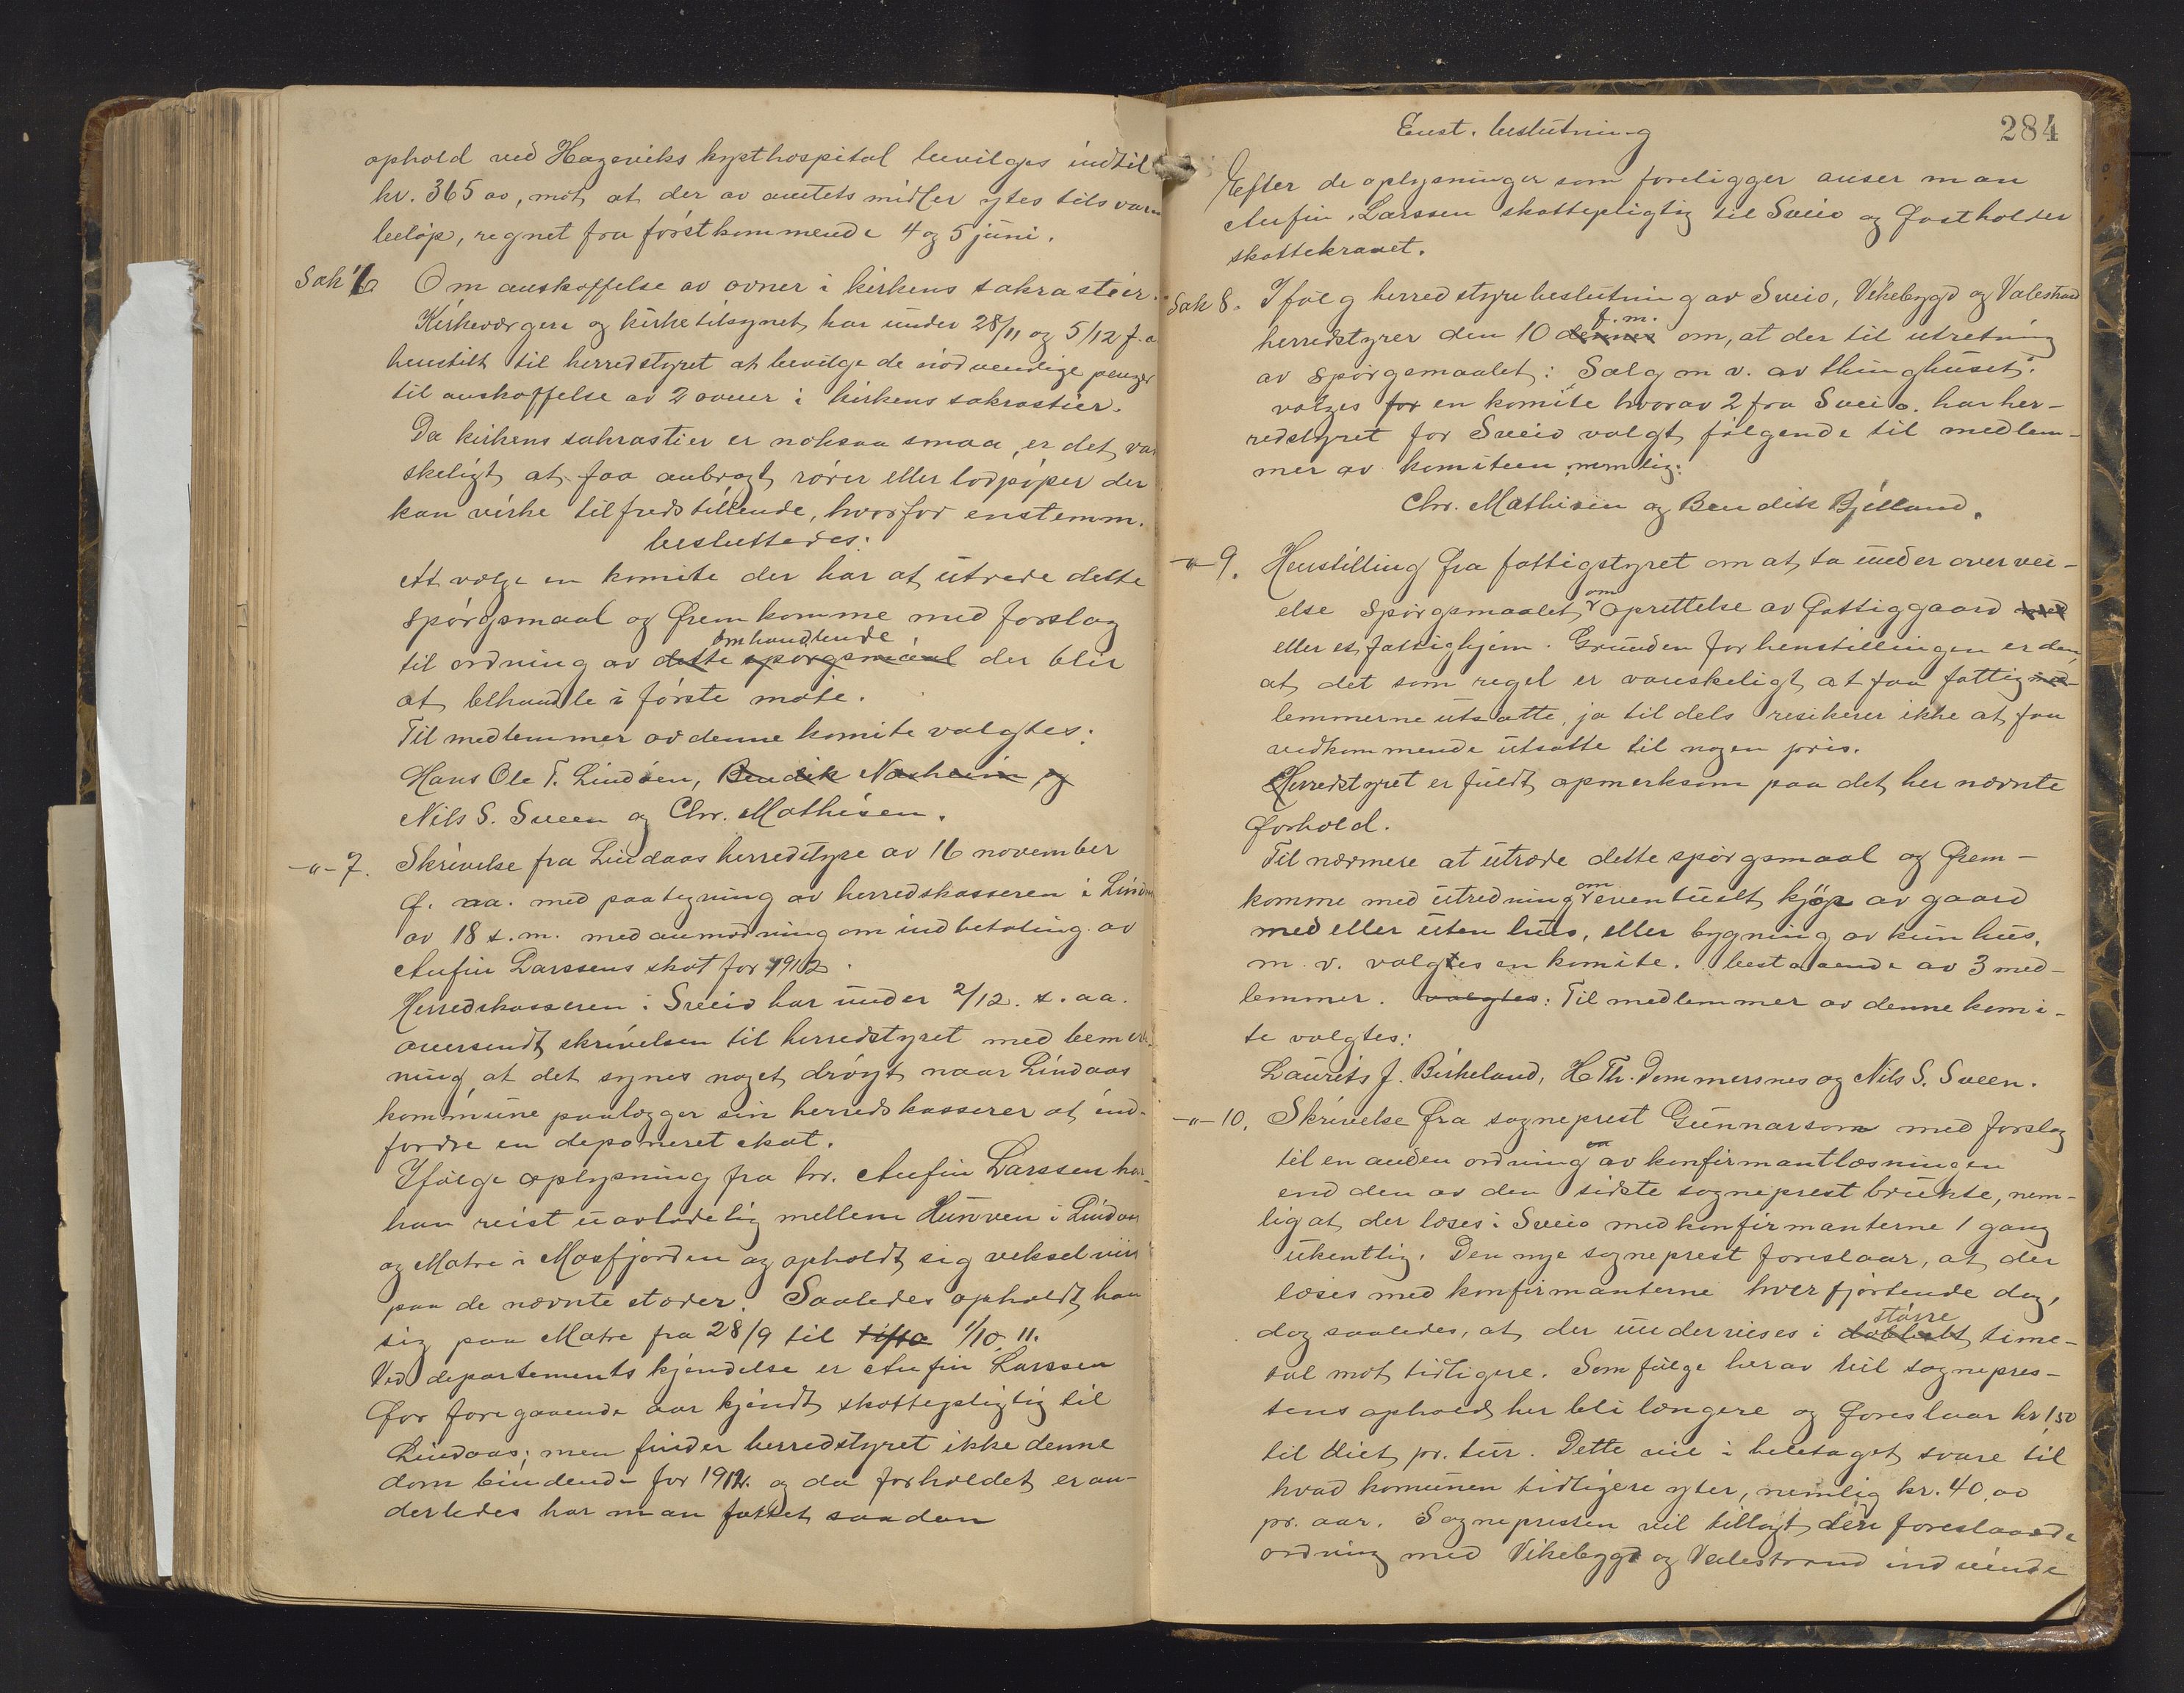 ophold ved Hageviks kysthospital bevilges indtil
kr. 365 00, mot, at der av amtets midler ytes tilsvar
beløp, regnet fra førstkommende 4 og 5 juni.
Sak 6 Om anskaffelse av ovner i kirkens sakrastier.
Kirkeværgere og kirketilsynet har under 28/11 og 5/12 f. a
henstilt til herredstyret at bevilge de nødvendige penger
til anskaffelse av 2 ovner i kirkens sakrastier.
Da kirkens sakrastier er noksaa smaa, er det van
skeligt at faa anbragt rører eller lodpiper der
kan virke tilfredstillende, hvorfor enstemm.
besluttedes:
At vælge en komite der har at utrede dette
spørgsmaal og fremkomme med forslag
omhandlende
til ordning av dette spørgsmaal der blir
at behandle i første møte.
Til medlemmer av denne komite valgtes:
Hans Ole T. Lindøen, Bendik Næsheim og
Nils S. Sveen og Chr. Mathisen.
-"- 7. Skrivelse fra Lindaas herredstyre av 16 november
f. aa. med paategning av herredskasseren i Lindaa
av 18 s. m. med anmodning om indbetaling av
Anfin Larssens skat for 1912.
Herredskasseren i Sveio har under 2/12. s. aa.
oversendt skrivelsen til herredstyret med bemerk-
ning, at det synes noget drøyt naar Lindaas
kommune paalægger sin herredskasserer at ind-
fordre en deponeret skat.
Ifølge oplysning fra hr. Anfin Larssen har
han reist uavladelig mellem Hunven i Lindaas
og Matre i Masfjorden og opholdt sig vekselvis
paa de nævnte stæder. Saaledes opholdt han
sig paa Matre fra 28/9 til 1/10 11.
Ved departements kjendelse er Anfin Larssen
for foregaaende aar kjendt skattepligtig til
Lindaas; men finder herredstyret ikke denne
dom bindende for 1912. og da forholdet er an-
derledes har man fattet saadan
284
Enst. beslutning
Efter de oplysninger som foreligger anser man
Anfin Larssen skattepligtig til Sveio og fastholder
skattekravet.
Sak 8. Ifølg herredstyrebeslutning av Sveio, Vikebygd og Valestrand
f. m.
herredstyrer den 10 dennes om, at der til utretning
av spørgsmaalet: Salg m v. av thinghuset.
valges for en komite hvorav 2 fra Sveio. har her-
redstyret for Sveio valgt følgende til medlem-
mer av komiteen nemlig:
Chr. Mathisen og Bendik Bjelland.
-"- 9. Henstilling fra fattigstyret om at ta under overvei-
om
else spørgsmaalet oprettelse av fattiggaard med
eller et fattighjem. Grunden for henstillingen er den,
at det som regel er vanskeligt at faa fattig med-
lemmerne utsatte, ja til dels resikerer ikke at faa
vedkommende utsatte til nogen pris.
Herredstyret er fuldt opmerksom paa det her nævnte
forhold.
Til nærmere at utrede dette spørgsmaal og frem-
om
komme med utredning eventuelt kjøp av gaard
med eller uten hus, eller bygning av kun hus.
m. v. valgtes en komite. bestaaende av 3 med-
lemmer. valgtes: Til medlemmer av denne komi-
te valgtes:
Laurits J. Birkeland, H Th. Dommersnes og Nils S. Sveen.
-"- 10. Skrivelse fra sogneprest Gunnarson med forslag
om
til en anden ordning av konfirmantlæsningen
end den av den sidste sogneprest brukte, nem-
lig at der læses i Sveio med konfirmanterne 1 gang
ukentlig. Den nye sogneprest foreslaar, at der
læses med konfirmanterne hver fjortende dag,
større
dog saaledes, at der undervises i dobbelt time-
tal mot tidligere. Som følge herav vil sognepres-
tens ophold her bli længere og foreslaar kr 1,50
til diet pr. tur. Dette vil i heletaget svare til
hvad komunen tidligere yter, nemlig kr. 40,00
pr. aar. Sognepresten vil tillagt den foreslaaede
ordning med Vikebygd og Valestrand indvinde